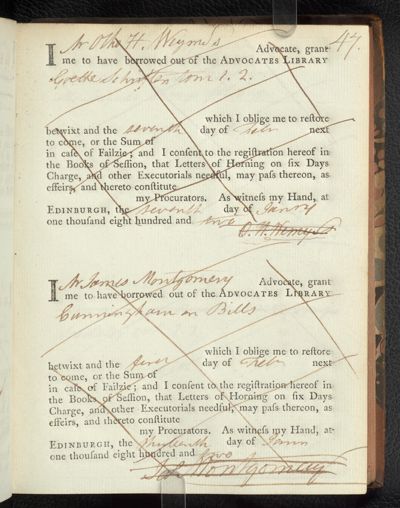 47.
I Mr Otho H. Weymss Advocate, grant
me to have borrowed out of the ADVOCATES LIBRARY
Goethe Schriften tom 1. 2.
which I oblige me to reſtore
betwixt and the seventh day of Feby next
to come, or the Sum of
in caſe of Failzie; and I conſent to the regiſtration hereof in
the Books of Seſſion, that Letters of Horning on ſix Days
Charge, and other Executorials needful, may paſs thereon, as
effeirs, and thereto conſtitute
my Procurators. As witneſs my Hand, at
EDINBURGH, the seventh day of Janry
one thouſand eight hundred and two
O. H. Wemyss
I Mr James Montgomery Advocate, grant
me to have borrowed out of the ADVOCATES LIBRARY
Cunningham on Bills
which I oblige me to reſtore
betwixt and the day of Feby next
to come, or the Sum of
in caſe of Failzie; and I conſent to the regiſtration hereof in
the Books of Seſſion, that Letters of Horning on ſix Days
Charge, and other Executorials needful, may paſs thereon, as
effeirs, and thereto conſtitute
my Procurators. As witneſs my Hand, at
EDINBURGH, the day of
one thouſand eight hundred and two
Montgomery